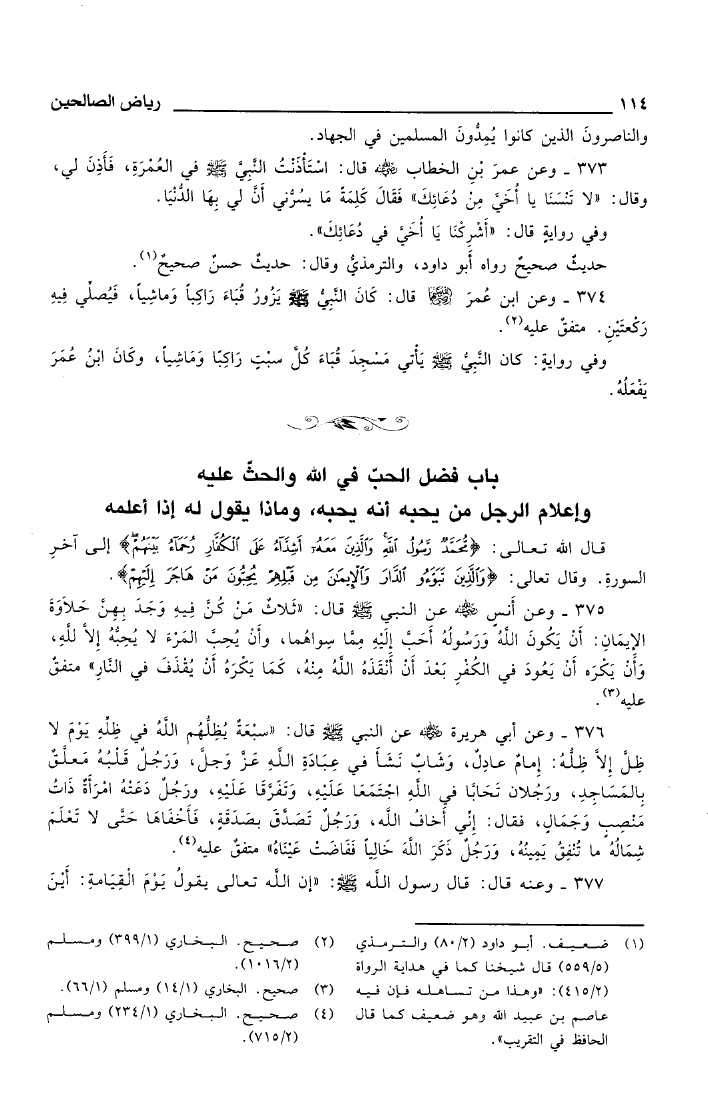 ١١٤ رياض الصالحين
والناصرونَ الذين كانوا يُمِدُّونَ المسلمين في الجهاد.
٣٧٣ ـ وعن عمرَ بْنِ الخطاب رضي الله عنه قال: اسْتَأْذَنْتُ النَّبِيَّ ﷺ في العُمْرَةِ، فَأَذِنَ لي،
وقال: «لا تَنْسَنَا يا أُخَيَّ مِنْ دُعَائِكَ» فَقَالَ كَلِمَةً مَا يسُرُّني أَنَّ لي بِهَا الدُّنْيَا.
وفي روايةٍ قال: «أَشْرِكْنَا يَا أُخَيَّ في دُعَائِكَ».
حديثٌ صحيحٌ رواه أبو داود، والترمذيُّ وقال: حديثٌ حسنٌ صحيحٌ(١).
٣٧٤ ـ وعن ابن عُمرَ رضي الله عنهما قال: كَانَ النَّبِيُّ ﷺ يَزُورُ قُبَاءَ رَاكِباً وَماشِياً، فَيُصلِّي فِيهِ
رَكْعتَيْنِ. متفقٌ عليه(٢).
وفي روايةٍ: كان النَّبيُّ ﷺ يَأْتي مَسْجِدَ قُبَاءَ كُلَّ سبْتٍ رَاكِبًا وَمَاشِياً، وكَانَ ابْنُ عُمَرَ
يَفْعَلُهُ.
باب فضل الحبّ في الله والحثّ عليه
وإعلام الرجل من يحبه أنه يحبه، وماذا يقول له إذا أعلمه
قال الله تعالى: ﴿مُّحَمَّدٌ رَّسُولُ اللَّهِ وَالَّذِينَ مَعَهُ أَشِدَّاءُ عَلَى الْكُفَّارِ رُحَمَاءُ بَيْنَهُمْ﴾ إلى آخرِ
السورةِ. وقال تعالى: ﴿وَالَّذِينَ تَبَوَّءُو الدَّارَ وَالْإِيمَانَ مِن قَبْلِهِمْ يُحِبُّونَ مَنْ هَاجَرَ إِلَيْهِمْ﴾.
٣٧٥ ـ وعن أنسٍ رضي الله عنه عن النبي ﷺ قال: «ثَلاثٌ مَنْ كُنَّ فِيهِ وَجَدَ بِهِنَّ حَلاوَةَ
الإيمَانِ: أَنْ يَكُونَ اللَّهُ وَرَسُولُهُ أَحَبَّ إِلَيْهِ مِمَّا سِواهُما، وأَنْ يُحِبَّ المَرْءَ لا يُحِبُّهُ إلاَّ للَّهِ،
وَأَنْ يَكْرَه أَنْ يَعُودَ في الكُفْرِ بَعْدَ أَنْ أَنْقَذَهُ اللَّهُ مِنْهُ، كَمَا يَكْرَهُ أَنْ يُقْذَفَ في النَّارِ» متفقٌ
عليه(٣).
٣٧٦ ـ وعن أبي هريرة رضي الله عنه عن النبي ﷺ قال: «سبْعَةٌ يُظِلُّهُم اللَّهُ في ظِلِّهِ يَوْمَ لا
ظِلَّ إلاَّ ظِلُّهُ: إمامٌ عادِلٌ، وَشَابٌّ نَشَأَ في عِبَادَةِ اللَّهِ عَزَّ وَجلَّ، وَرَجُلٌ قَلْبُهُ مُعَلَّقٌ
بِالمَسَاجِدِ، ورَجُلان تَحَابَّا في اللَّهِ اجْتَمَعَا عَلَيْهِ، وَتَفَرَّقَا عَلَيْهِ، ورَجُلٌ دَعَتْهُ امْرَأَةٌ ذَاتُ
مَنْصِبٍ وَجَمَالٍ، فقال: إِنِّي أَخافُ اللَّه، وَرَجُلٌ تَصَدَّقَ بصَدَقَةٍ، فَأَخْفَاهَا حَتَّى لا تَعْلَمَ
شِمَالُهُ ما تُنْفِقُ يَمِينُهُ، وَرَجُلٌ ذَكَرَ اللَّهَ خَالِياً فَفَاضَتْ عَيْنَاهُ» متفقٌ عليه(٤).
٣٧٧ ـ وعنه قال: قال رسول اللَّه ﷺ: «إن اللَّه تعالى يقولُ يَوْمَ الْقِيَامَةِ: أَيْنَ
(١) ضعيف. أبو داود (٨٠/٢) والترمذي
(٥٥٩/٥) قال شيخنا كما في هداية الرواة
(٤١٥/٢): «وهذا من تساهله فإن فيه
عاصم بن عبيد الله وهو ضعيف كما قال
الحافظ في التقريب».
(٢) صحيح. البخاري (٣٩٩/١) ومسلم
(١٠١٦/٢).
(٣) صحيح. البخاري (١٤/١) ومسلم (٦٦/١).
(٤) صحيح. البخاري (٢٣٤/١) ومسلم
(٧١٥/٢).